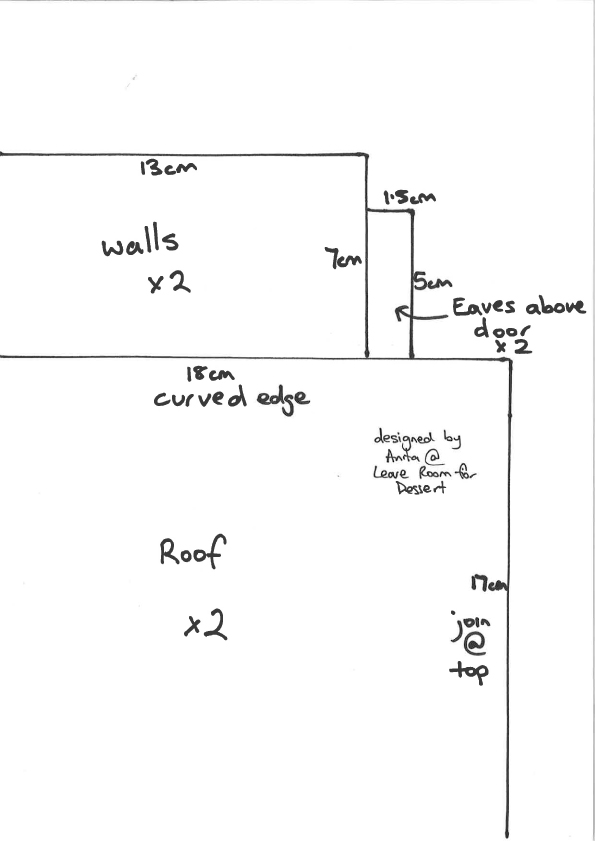 13cm
1.5cm
walls
x2
7cm
5cm
Eaves above
door
x2
18cm
curved edge
designed by
Anita @
Leave Room for
Dessert
Roof
x2
17cm
join
@
top